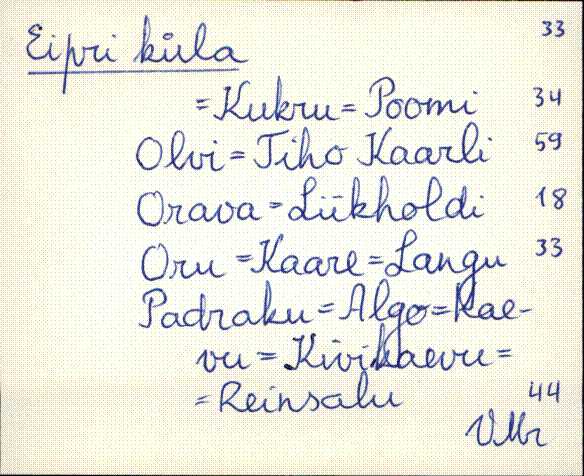 Eipri küla 33
=Kukru=Poomi 34
Olvi=Tiho Kaarli 59
Orava=Liikholdi 18
Oru=Kaare=Langu 33
Padraku=Algo=Kae-
vu=Kivikaevu=
=Reinsalu 44
VMr